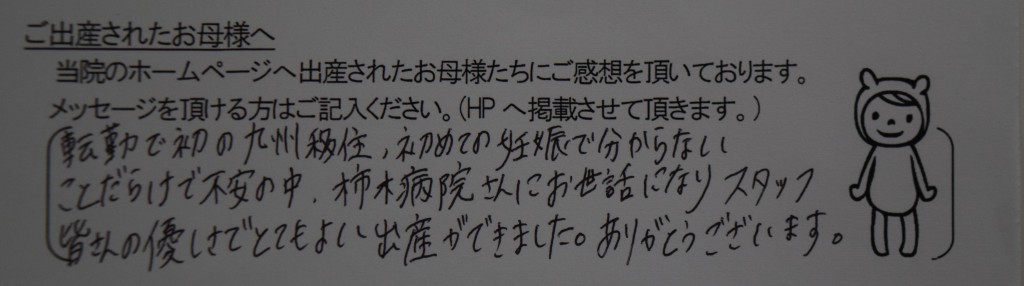 ご出産されたお母様へ
当院のホームページへ出産されたお母様たちにご感想を頂いております。
メッセージを頂ける方はご記入ください。(HPへ掲載させて頂きます。)
転勤で初の九州移住、初めての妊娠で分からない
ことだらけで不安の中、柿木病院さんにお世話になりスタッフ
皆さんの優しさでとてもよい出産ができました。ありがとうございます。